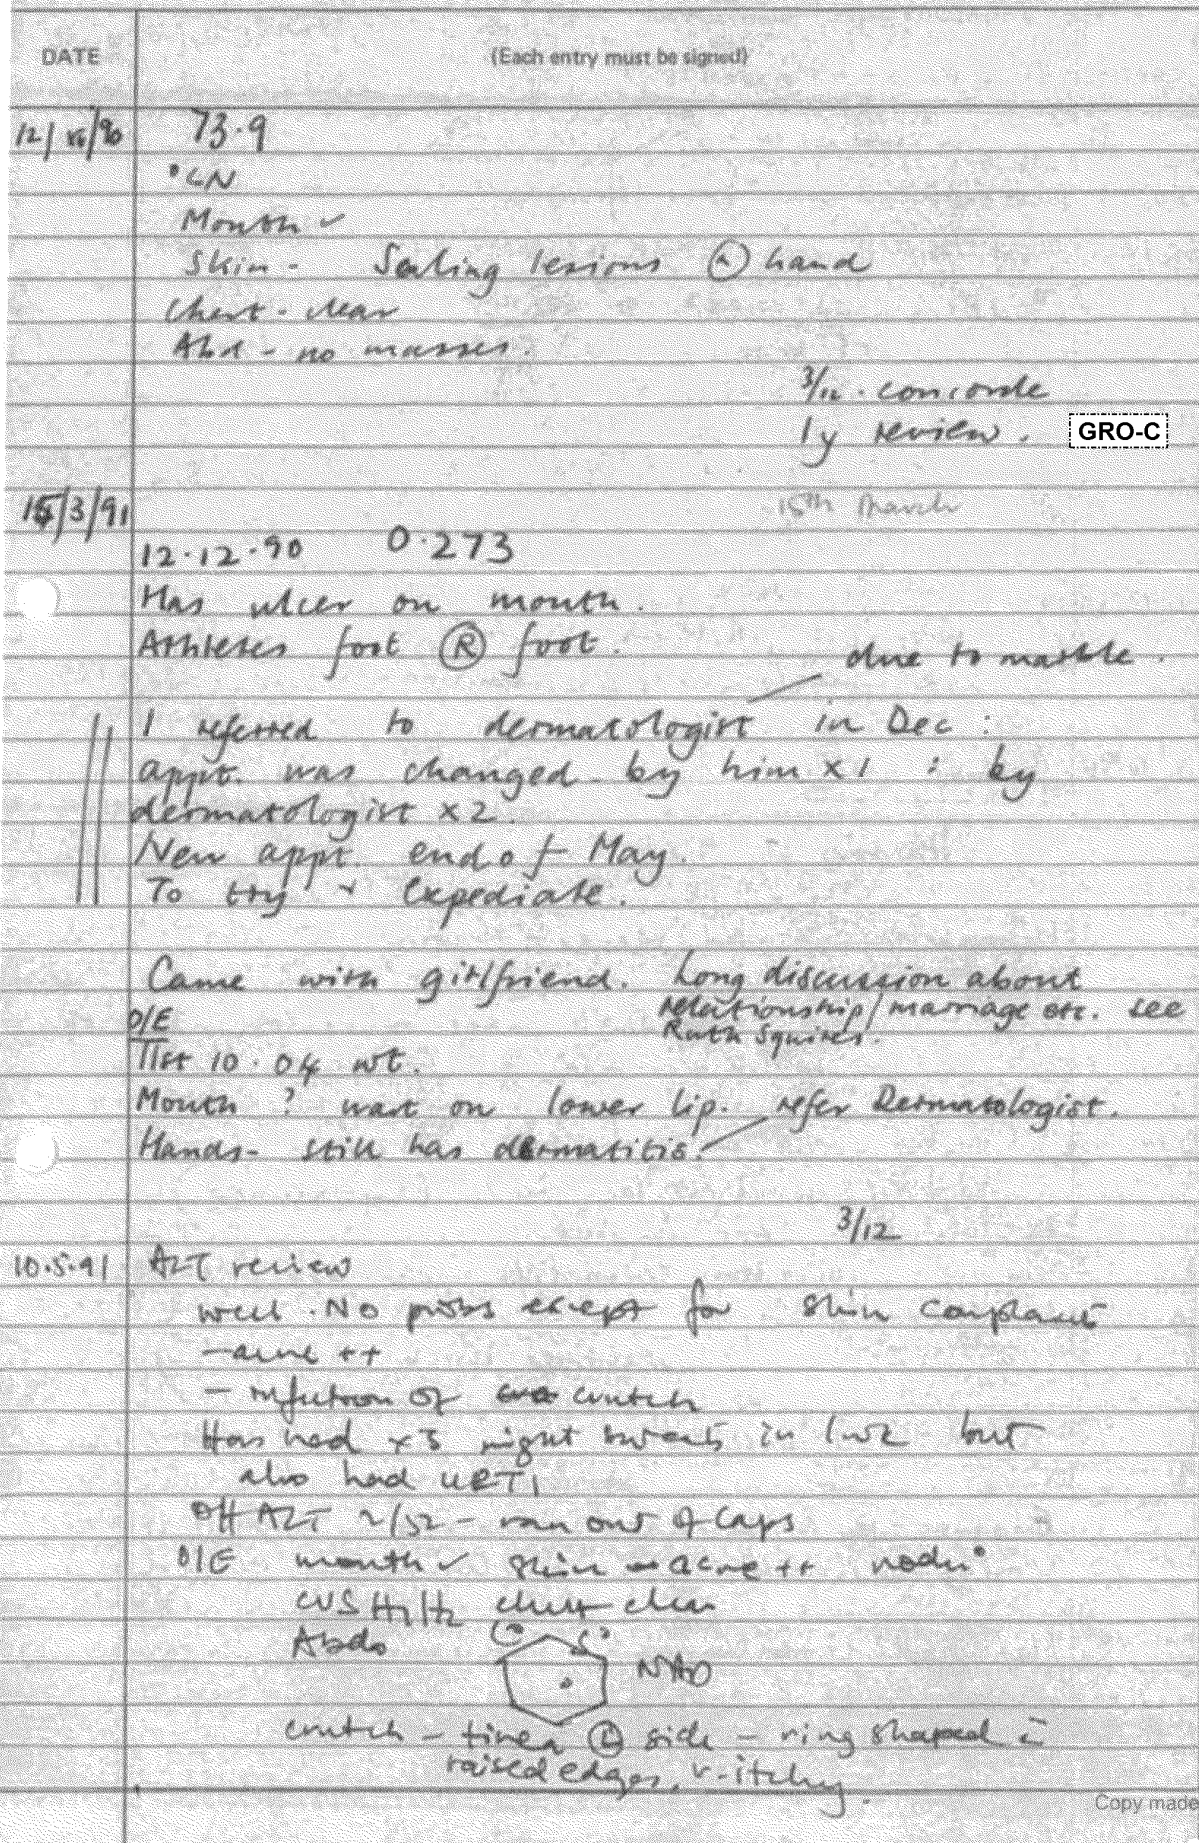 DATE (Each entry must be signed)
12/ /90 73.9
°LN
Mouth ✓
Skin - Scaling lesions hand
Chest - clear
Abd - no masses.
3/12 . concorde
1y review. GRO-C
15th March
15/3/91
12.12.90 0.273
Has ulcer on mouth.
Athletes foot Ⓡ foot.
due to
I referred to dermatologist in Dec :
appt. was changed by him x1 : by
dermatologist x2.
New appt. end of May.
To try + Expediate.
Came with girlfriend. Long discussion about
relationship/marriage etc. see
Ruth Squires.
O/E
11st 10.04 wt.
Mouth ? wart on lower lip. refer Dermatologist.
Hands- still has dermatitis.
3/12
10.5.91 AZT review
well. No probs except for skin complaints
- acne ++
- infection of crutch
Has had x3 night sweats in 1wk but
also had URTI
DH AZT 2/52 - ran out of caps
O/E mouth ✓ skin - acne ++ nodes°
CVS H1/H2 chest clear
Abdo NAD
crutch - tinea Ⓛ side - ring shaped c̄
raised edges, v. itchy.
Copy made